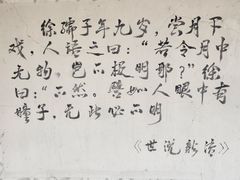 徐孺子年九岁,尝月下
戏,人语之曰:“若令月中
无物,岂不极明邪?”徐
曰:“不然。譬如人眼中有
瞳子,无此必不明
《世说新语》